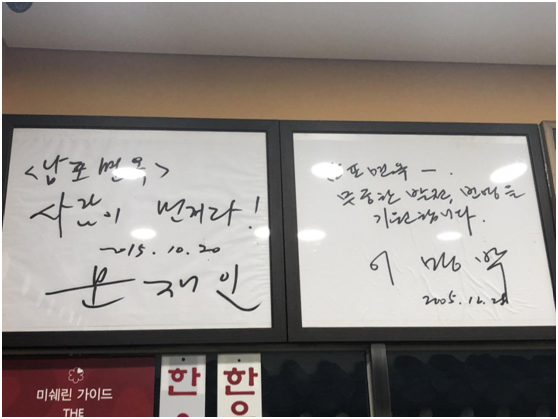 <남포면옥>
사람이 먼저다!
2015.10.20
문재인
남포면옥 —.
무궁한 발전, 번영을
기원합니다.
이 명 박
2005.12.28
미쉐린 가이드
THE
한
한우